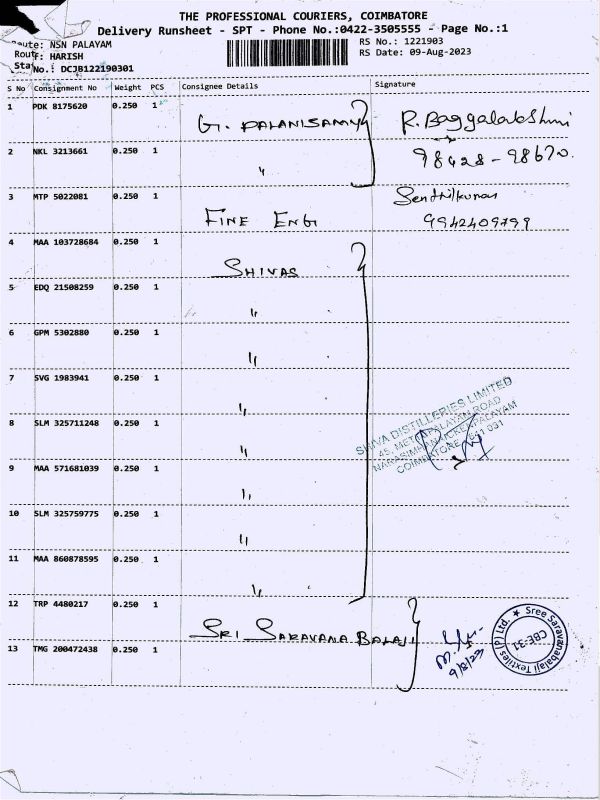 THE PROFESSIONAL COURIERS, COIMBATORE
Delivery Runsheet - SPT - Phone No.:0422-3505555 - Page No.:1
Route: NSN PALAYAM
RS No.: 1221903
HARISH
RS Date: 09-Aug-2023
No.: DCJB122190301
S No Consignment No Weight PCS Consignee Details Signature
1 PDK 8175620 0.250 1
G. PALANISAMY R. Baggalakshmi
2 NKL 3213661 0.250 1
" 98428-98670.
3 MTP 5022081 0.250 1
Senthilkumar
FINE ENG 9942409799
4 MAA 103728684 0.250 1
SHIVAS
5 EDQ 21508259 0.250 1
"
6 GPM 5302880 0.250 1
"
7 SVG 1983941 0.250 1
"
SHIVA DISTILLERIES LIMITED
45, METTAPALAYAM ROAD
NARASIMHANAICKENPALAYAM
COIMBATORE - 641 031
8 SLM 325711248 0.250 1
"
9 MAA 571681039 0.250 1
"
10 SLM 325759775 0.250 1
"
11 MAA 860878595 0.250 1
"
12 TRP 4480217 0.250 1
SRI SARAVANA BALAJI
Sree Saravanabalaji Textiles (P) Ltd.
CBE-31
9/8/23
13 TMG 200472438 0.250 1